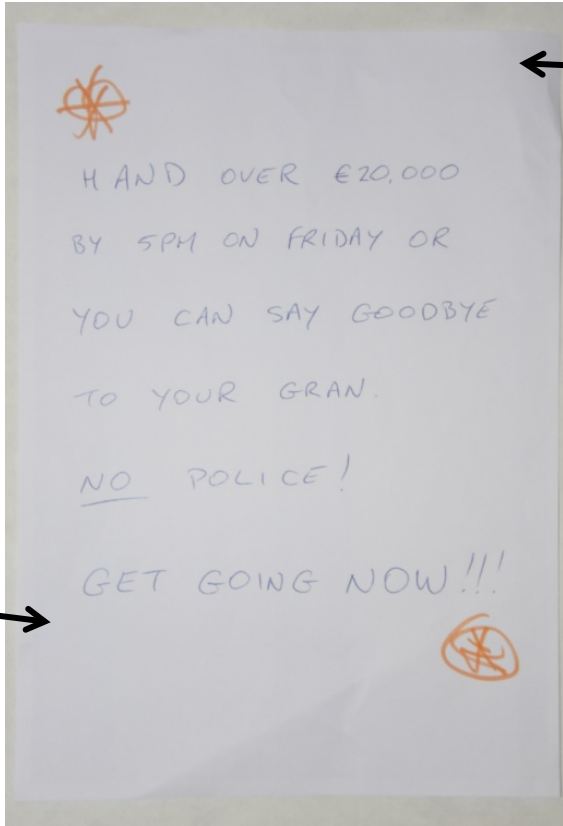 HAND OVER €20.000
BY 5PM ON FRIDAY OR
YOU CAN SAY GOODBYE
TO YOUR GRAN.
NO POLICE!
GET GOING NOW!!!